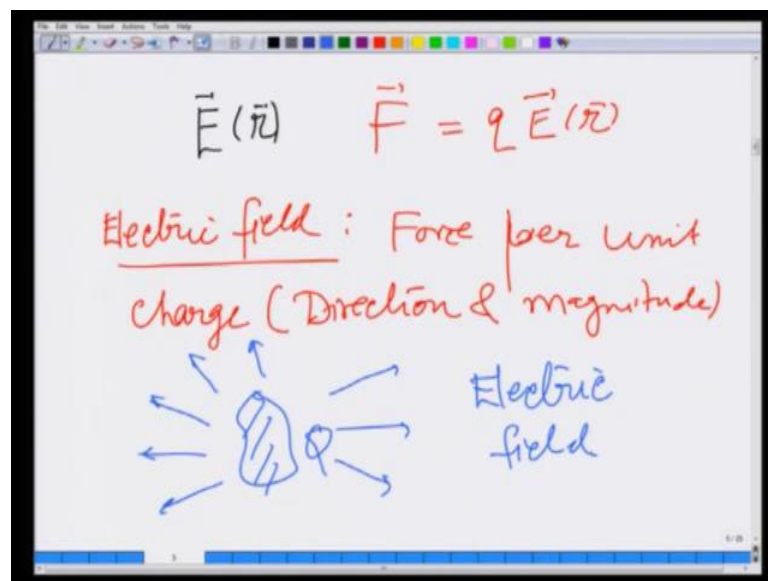 File Edit View Insert Actions Tools Help
E⃗(r⃗) F⃗ = q E⃗(r⃗)
Electric field : Force per unit
charge (Direction & magnitude)
Electric
field
5